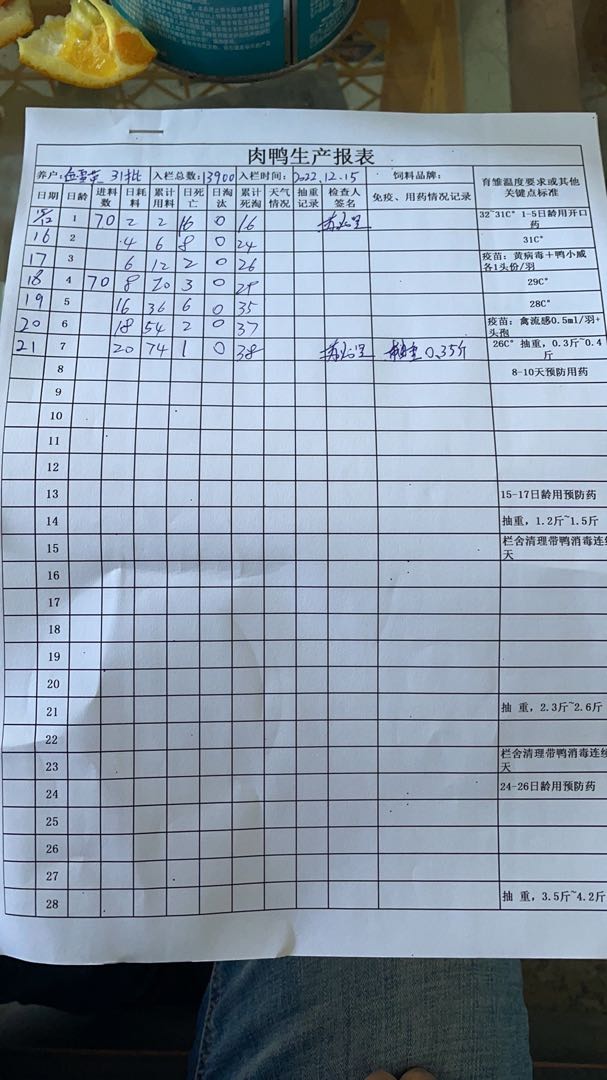 肉鸭生产报表
养户: 31批 入栏总数: 13900 入栏时间: 2022.12.15 饲料品牌: 育雏温度要求或其他关键点标准
日期 日龄 进料数 日耗料 累计用料 日死亡 日淘汰 累计死淘 天气情况 抽重记录 检查人签名 免疫、用药情况记录
1 70 2 2 16 0 16 32~31C° 1-5日龄用开口药
16 2 4 6 8 0 24 31C°
17 3 6 12 2 0 26 疫苗: 黄病毒+鸭小威各1头份/羽
18 4 70 8 20 3 0 29 29C°
19 5 16 36 6 0 35 28C°
20 6 18 54 2 0 37 疫苗: 禽流感0.5ml/羽+头孢
21 7 20 74 1 0 38 抽重 0.35斤 26C° 抽重, 0.3斤~0.4斤
8 8-10天预防用药
9
10
11
12
13 15-17日龄用预防药
14 抽重, 1.2斤~1.5斤
15 栏舍清理带鸭消毒连续天
16
17
18
19
20
21 抽 重, 2.3斤~2.6斤
22
23 栏舍清理带鸭消毒连续天
24 24-26日龄用预防药
25
26
27
28 抽 重, 3.5斤~4.2斤